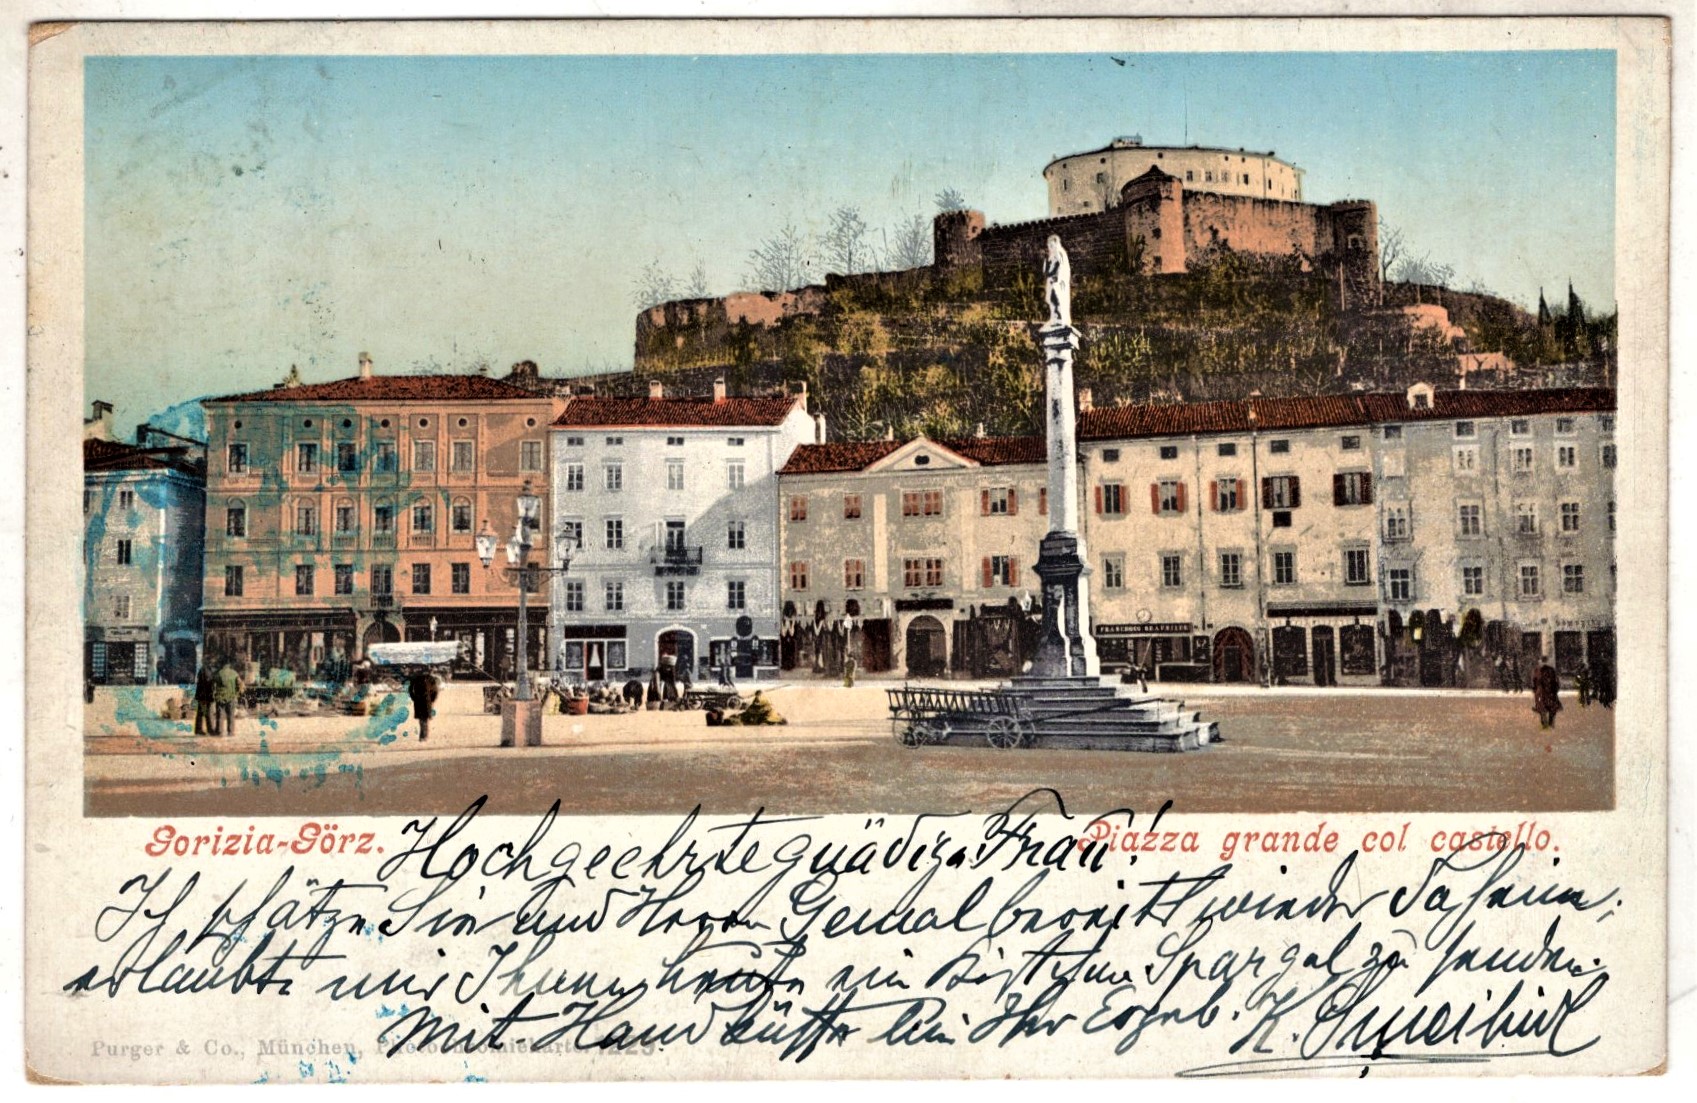 FRANCESCO
Gorizia-Görz.
Piazza grande col castello.
Hochgeehrte gnädige Frau!
Ich schätze Sie und Herrn Gemal bereits wieder daheim,
erlaubte mir Ihnen heute ein Kistchen Spargel zu senden.
Mit Handküsse bin Ihr Ergeb. K.
Purger & Co., München, Photochromiekarte. 223